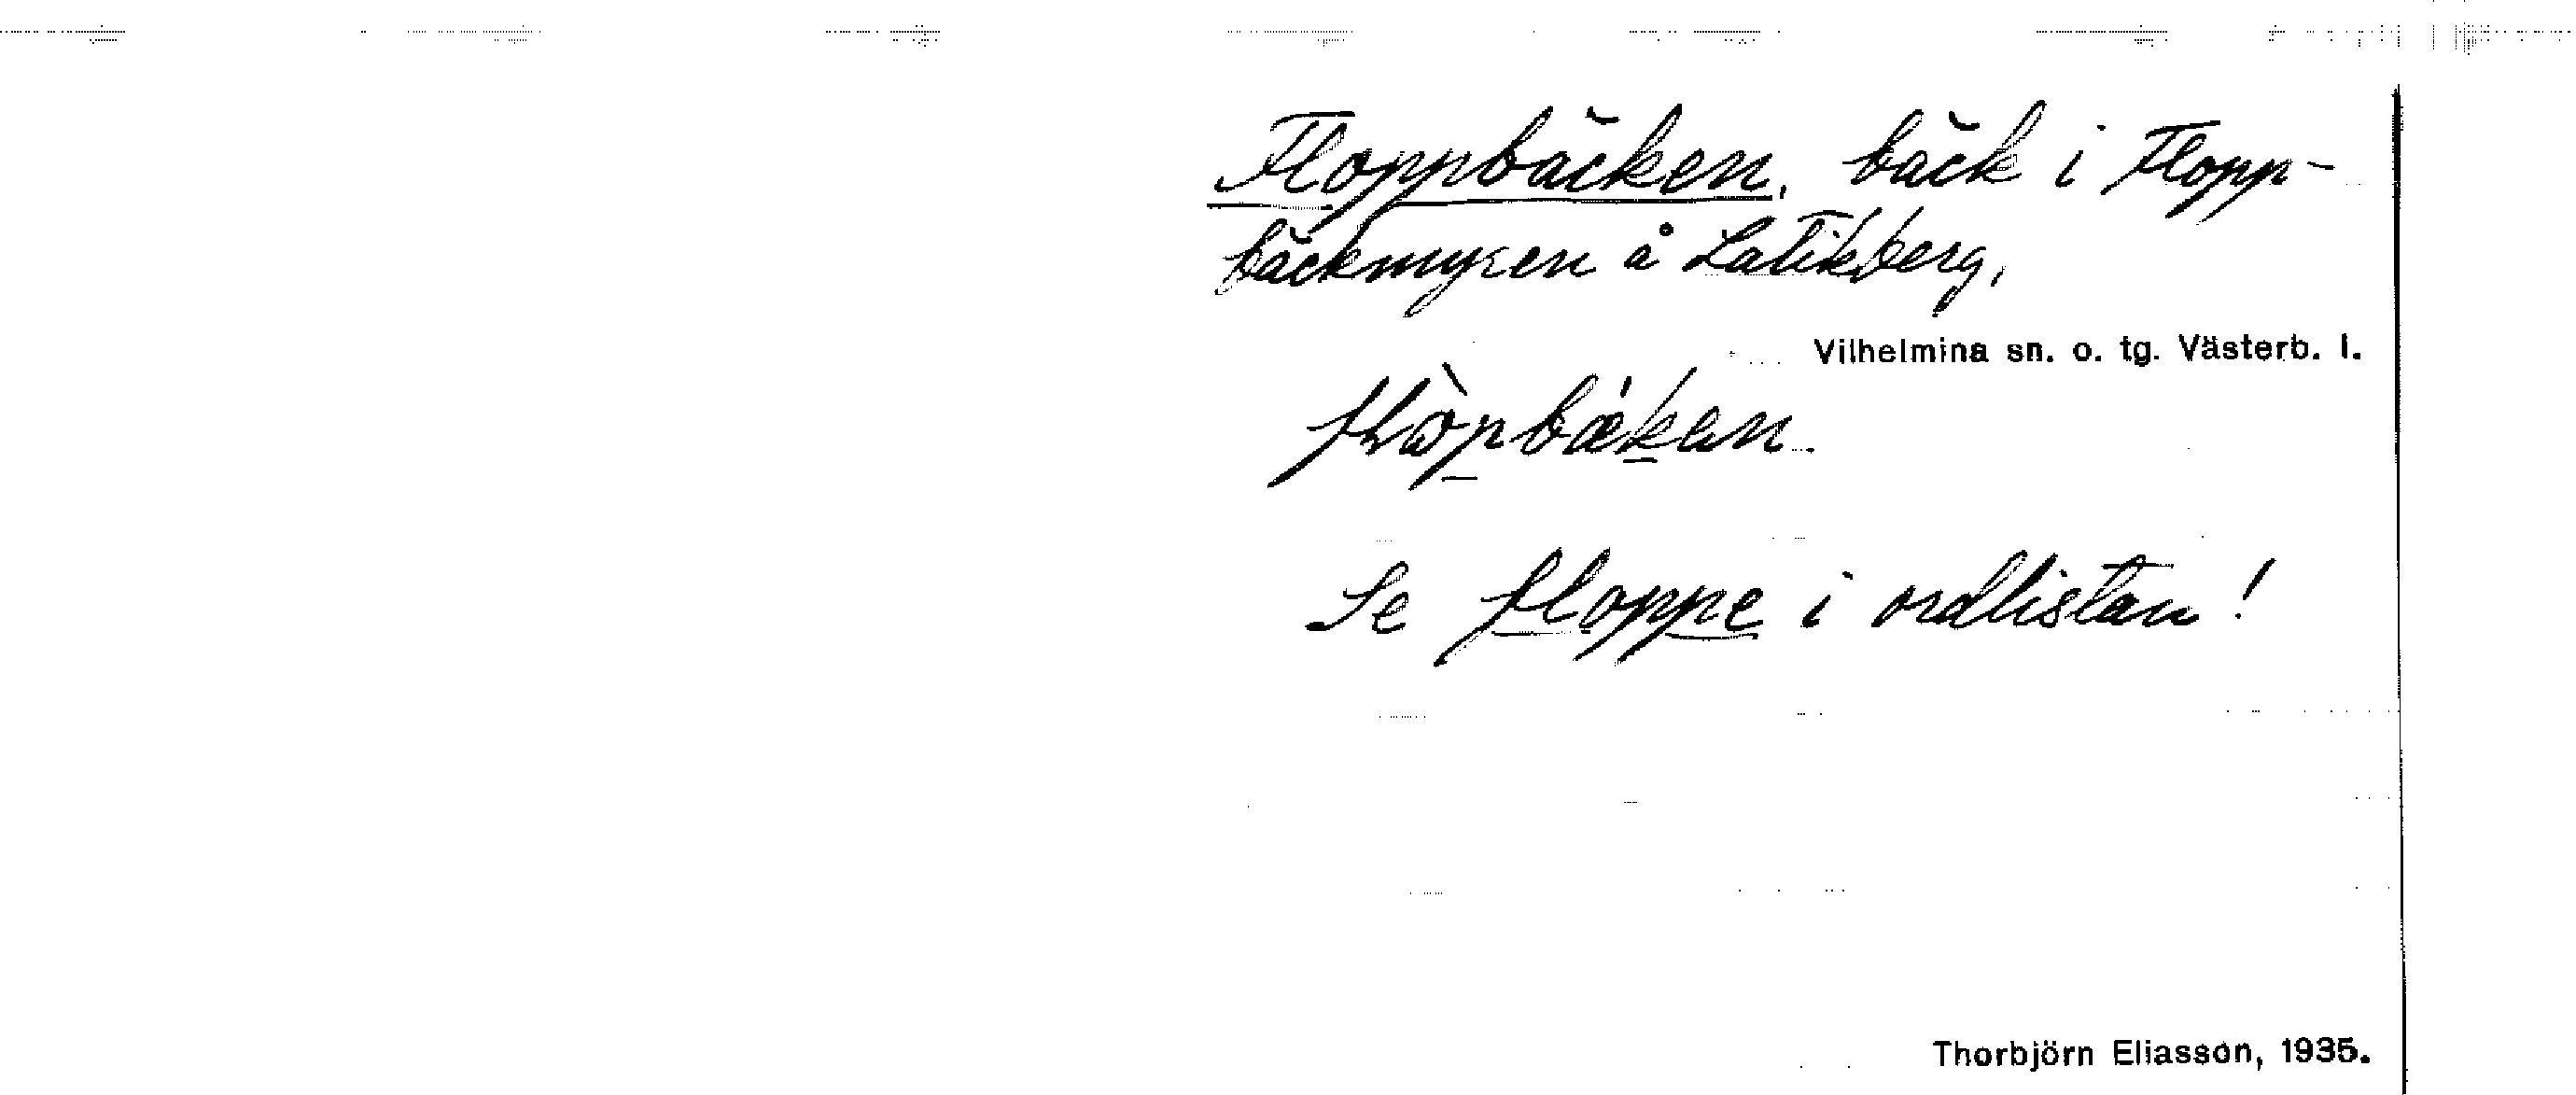 Floppbäcken, bäck i Flopp-
bäckmyren å Latikberg,
Vilhelmina sn. o. tg. Västerb. l.
flɷ̀pbǽkɐn
Se floppe i ordlistan!
Thorbjörn Eliasson, 1935.